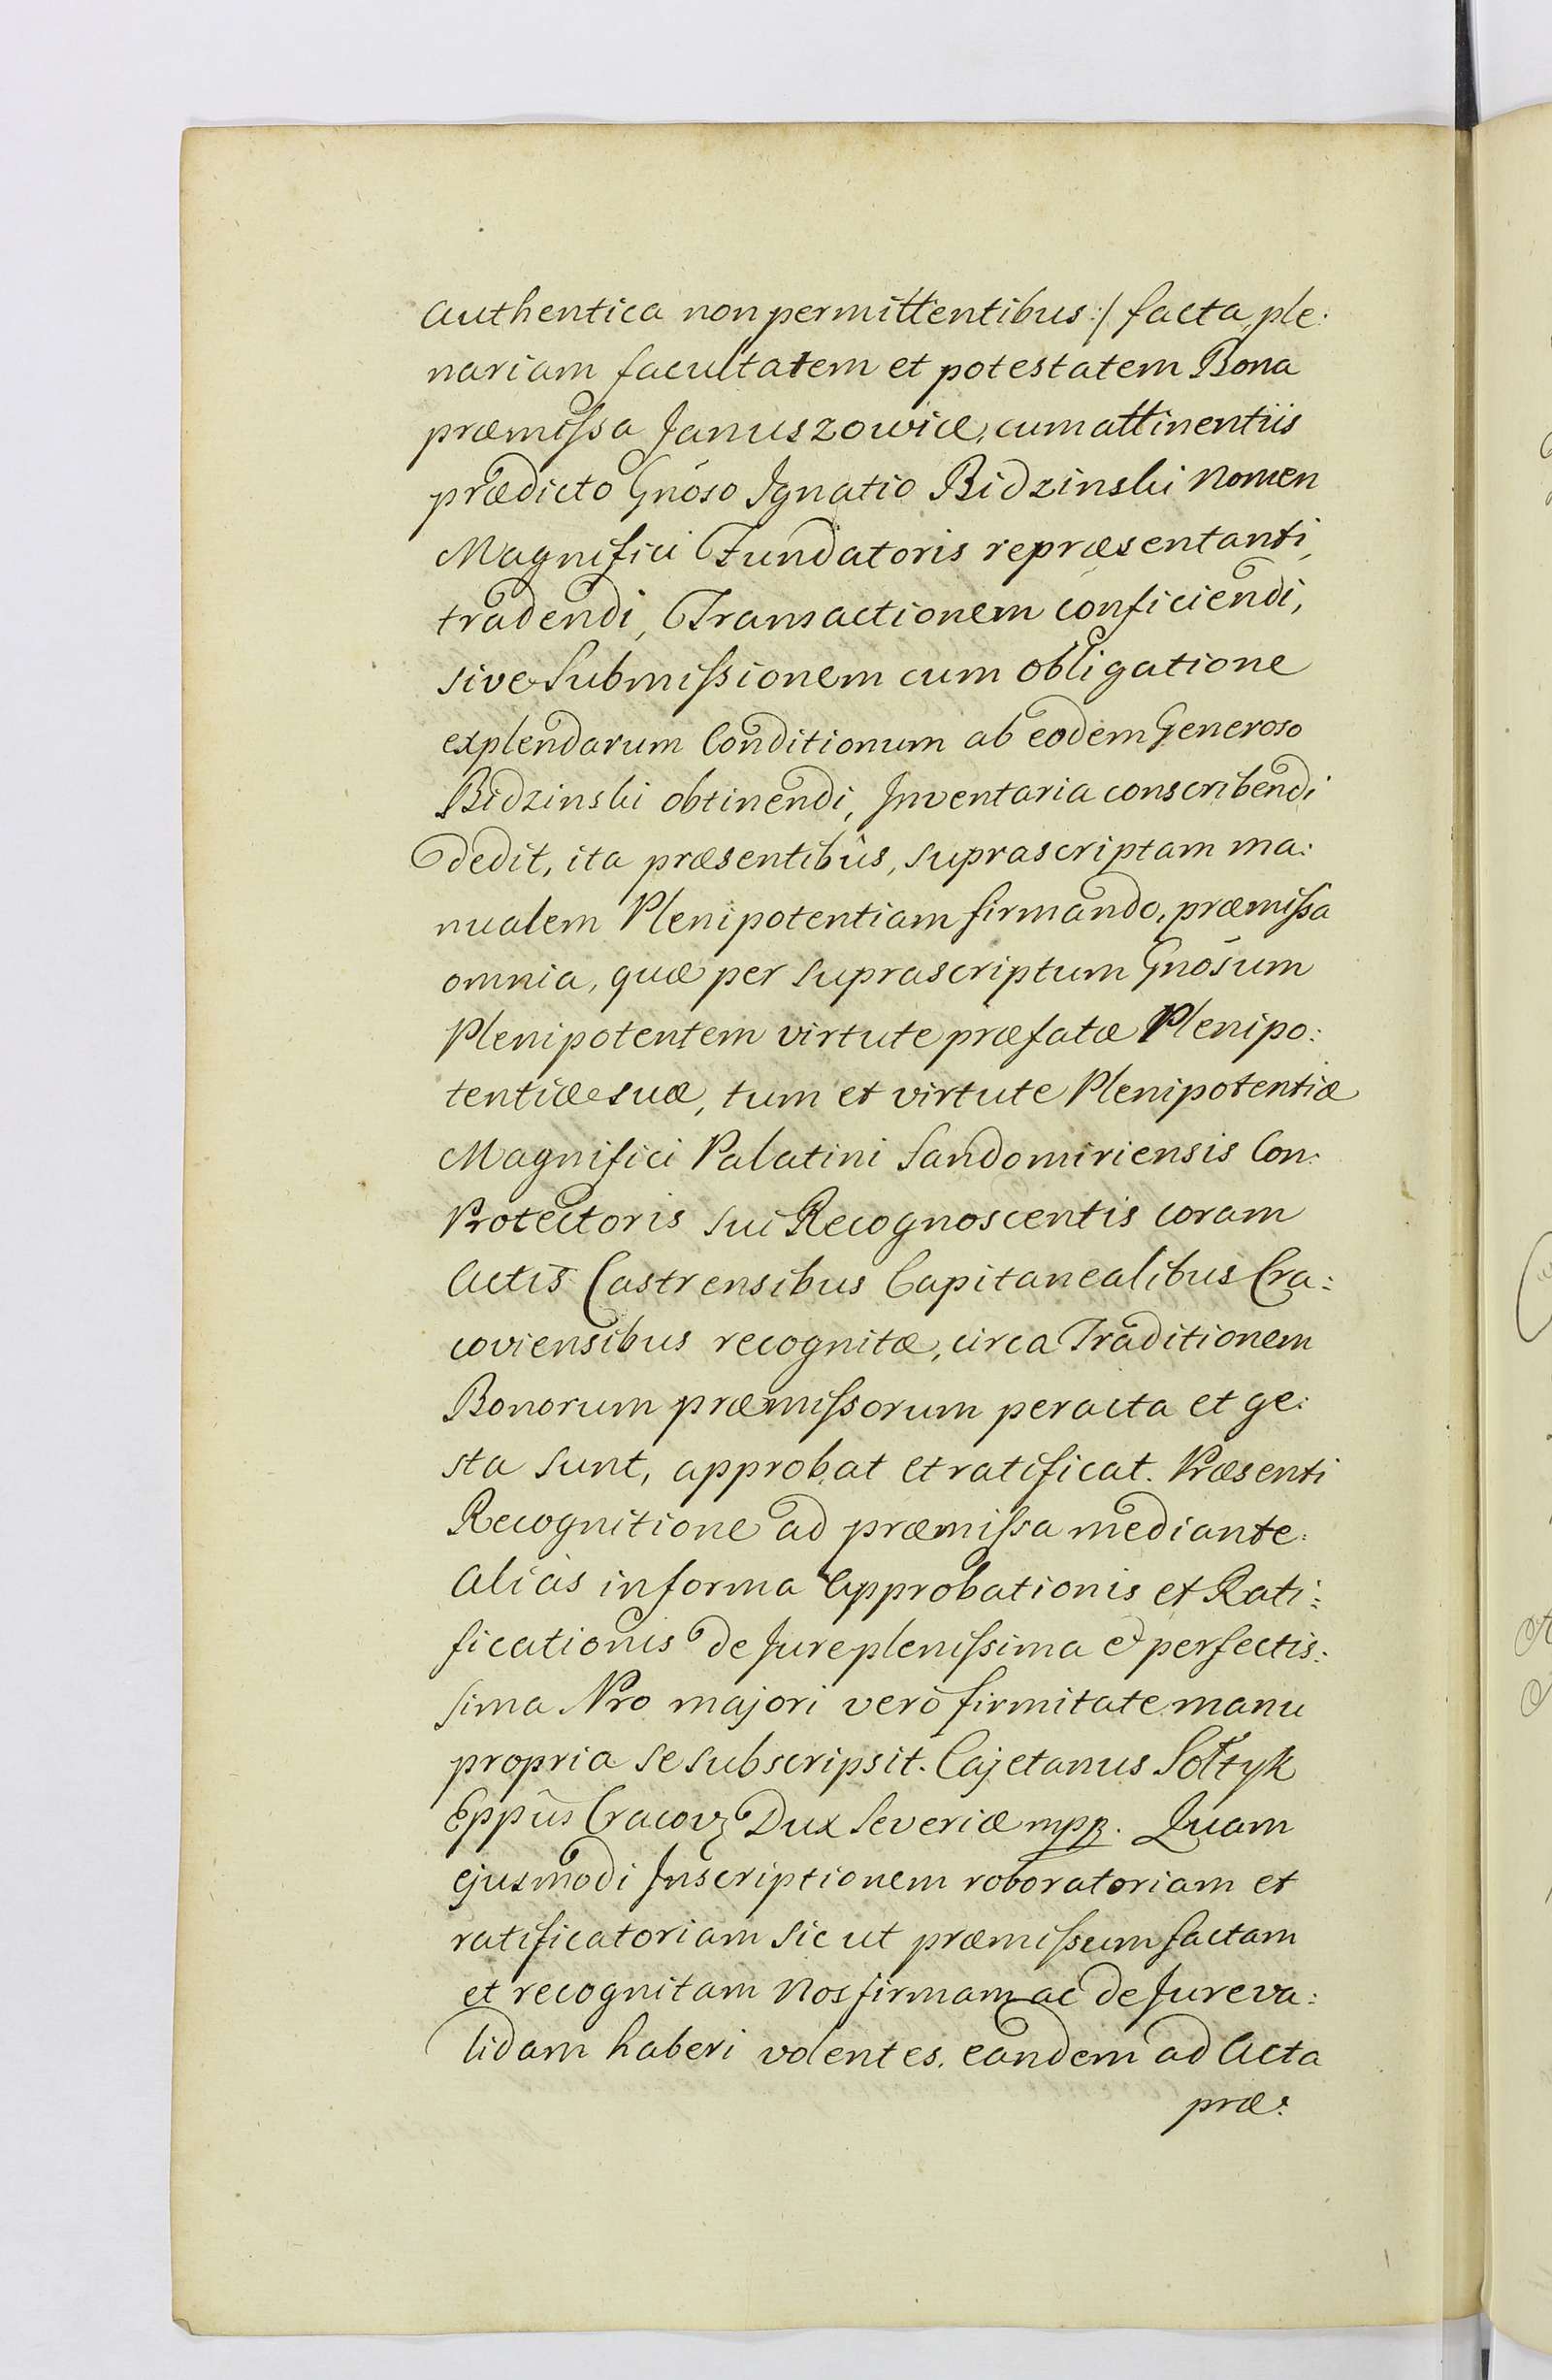 authentica non permittentibus:/ facta, ple:
nariam facultatem et potestatem Bona
præmissa Januszowice, cum attinentiis
prædicto Gnōso Ignatio Bidzinski nomen
Magnifici Fundatoris repræsentanti,
tradendi, Transactionem conficiendi,
sive Submissionem cum obligatione
explendarum Conditionum ab eodem Generoso
Bidzinski obtinendi, Inventaria conscribendi
dedit, ita præsentibus, suprascriptam ma:
nualem Plenipotentiam firmando, præmissa
omnia, quæ per suprascriptum Gnōsum
Plenipotentem virtute præfatæ Plenipo:
tentiæ suæ, tum et virtute Plenipotentiæ
Magnifici Palatini Sandomiriensis Con:
Protectoris sui Recognoscentis coram
Actis Castrensibus Capitanealibus Cra:
coviensibus recognitæ, circa Traditionem
Bonorum præmissorum peracta et ge:
sta sunt, approbat et ratificat. Præsenti
Recognitione ad præmissa mediante.
Alias in forma Approbationis et Rati:
ficationis de Jure plenissima et perfectis:
sima Pro majori verò firmitate manu
propria se subscripsit. Cajetanus Sołtyk
Eppūs Cracov: Dux Severiæ mpp. Quam
ejusmodi Inscriptionem roboratoriam et
ratificatoriam sic ut præmissum factam
et recognitam Nos firmam ac de Jure va:
lidam haberi volentes, eandem ad Acta
præ: